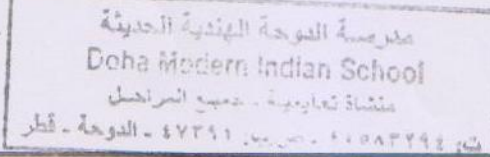 مدرسة الدوحة الهندية الحديثة
Doha Modern Indian School
منشأة تعليمية - جميع المراحل
ت: ٤٠٥٨٣٢٩٤ - ص.ب: ٤٧٣٩١ - الدوحة - قطر